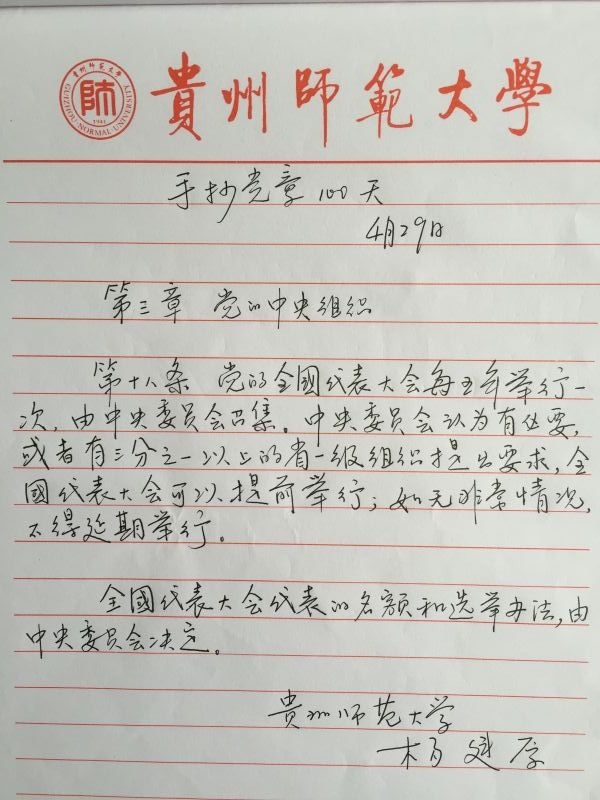 貴州師範大學
貴州師范大學
GUIZHOU NORMAL UNIVERSITY
師
1941
手抄党章100天
4月29日
第三章 党的中央组织
第十八条 党的全國代表大会每五年举行一
次，由中央委员会召集。中央委员会认为有必要，
或者有三分之一以上的省一级组织提出要求，全
國代表大会可以提前举行；如无非常情况，
不得延期举行。
全國代表大会代表的名额和选举办法，由
中央委员会决定。
貴州师范大学
杨建